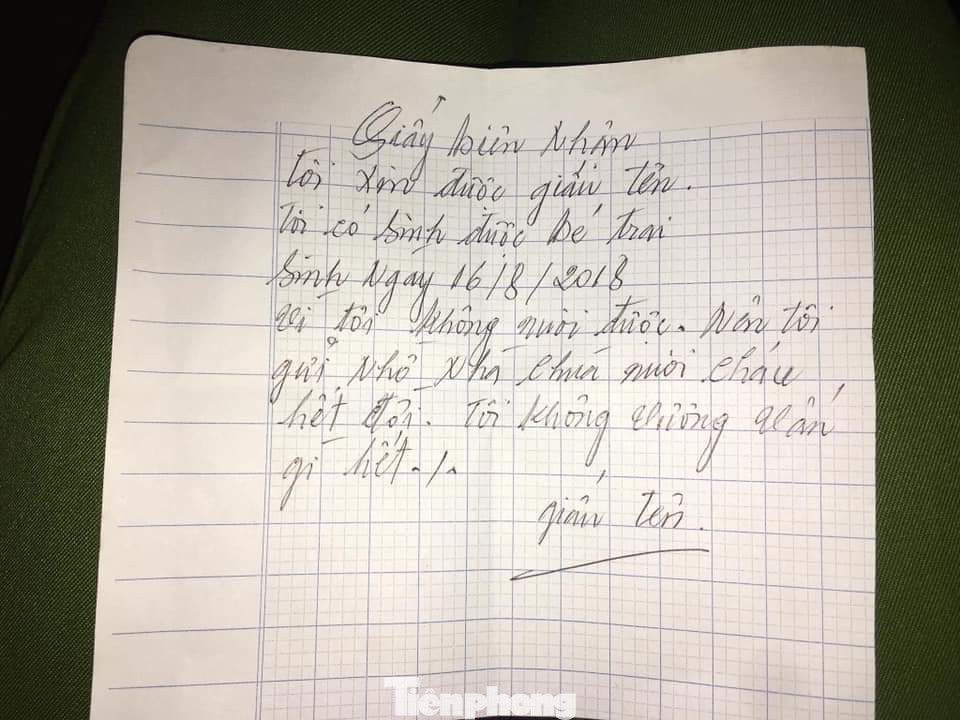 Giấy biên Nhận
Tôi xin được giấu tên.
Tôi có sinh được bé trai
sinh Ngày 16/8/2018
vì tôi không nuôi được. Nên tôi
gửi nhờ Nhà chùa nuôi cháu
hết đời. Tôi không vương vấn
gì hết./.
giấu tên.
Tiênphong